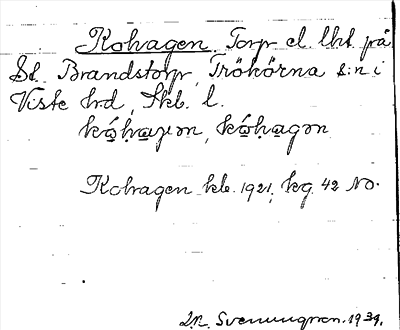 Kohagen. Torp el. lht på
St. Brandstorp, Trökörna s:n i
Viste hrd, Skb. l.
kóhaɣən, kóhagən
Kohagen kb. 1921, kg. 42 No.
Svenungson. 1939.